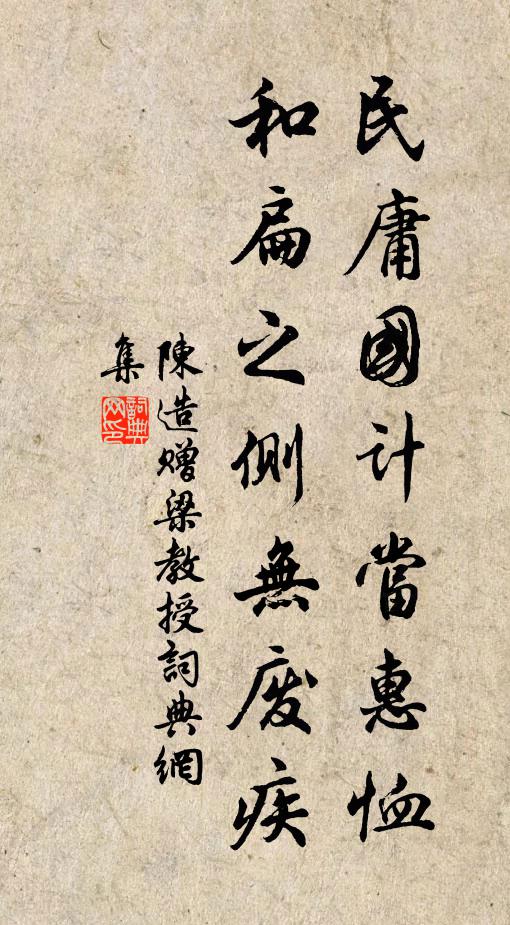 民庸國計當惠恤
和扁之側無廢疾
陳造贈梁教授詞典網
集
詞典网印